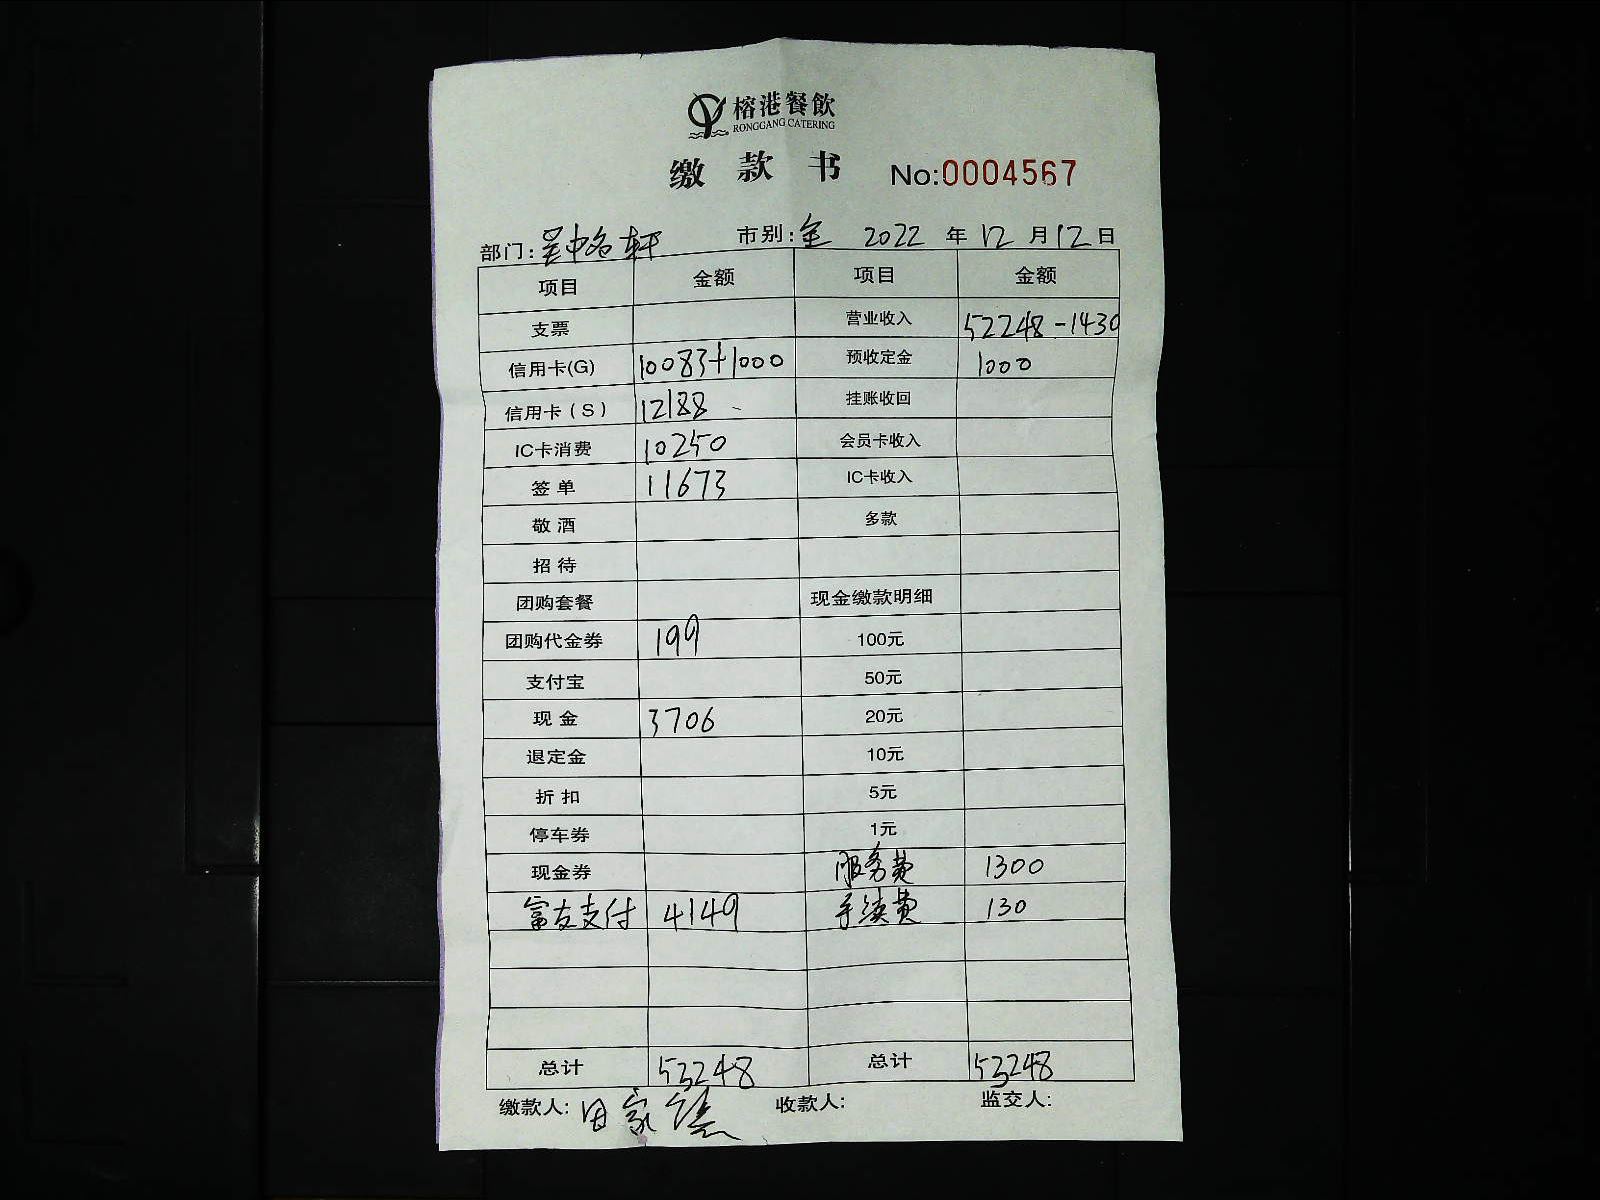 榕港餐飲
RONGGANG CATERING
缴款书 No:0004567
部门: 吴中名轩 市别: 全 2022 年 12 月 12 日
项目 金额 项目 金额
支票 营业收入 52248-1430
信用卡(G) 10083+1000 预收定金 1000
信用卡(S) 12188 挂账收回
IC卡消费 10250 会员卡收入
签单 11673 IC卡收入
敬酒 多款
招待
团购套餐 现金缴款明细
团购代金券 199 100元
支付宝 50元
现金 3706 20元
退定金 10元
折扣 5元
停车券 1元
现金券 服务费 1300
富友支付 4149 手续费 130
总计 53248 总计 53248
缴款人: 田家 收款人: 监交人: